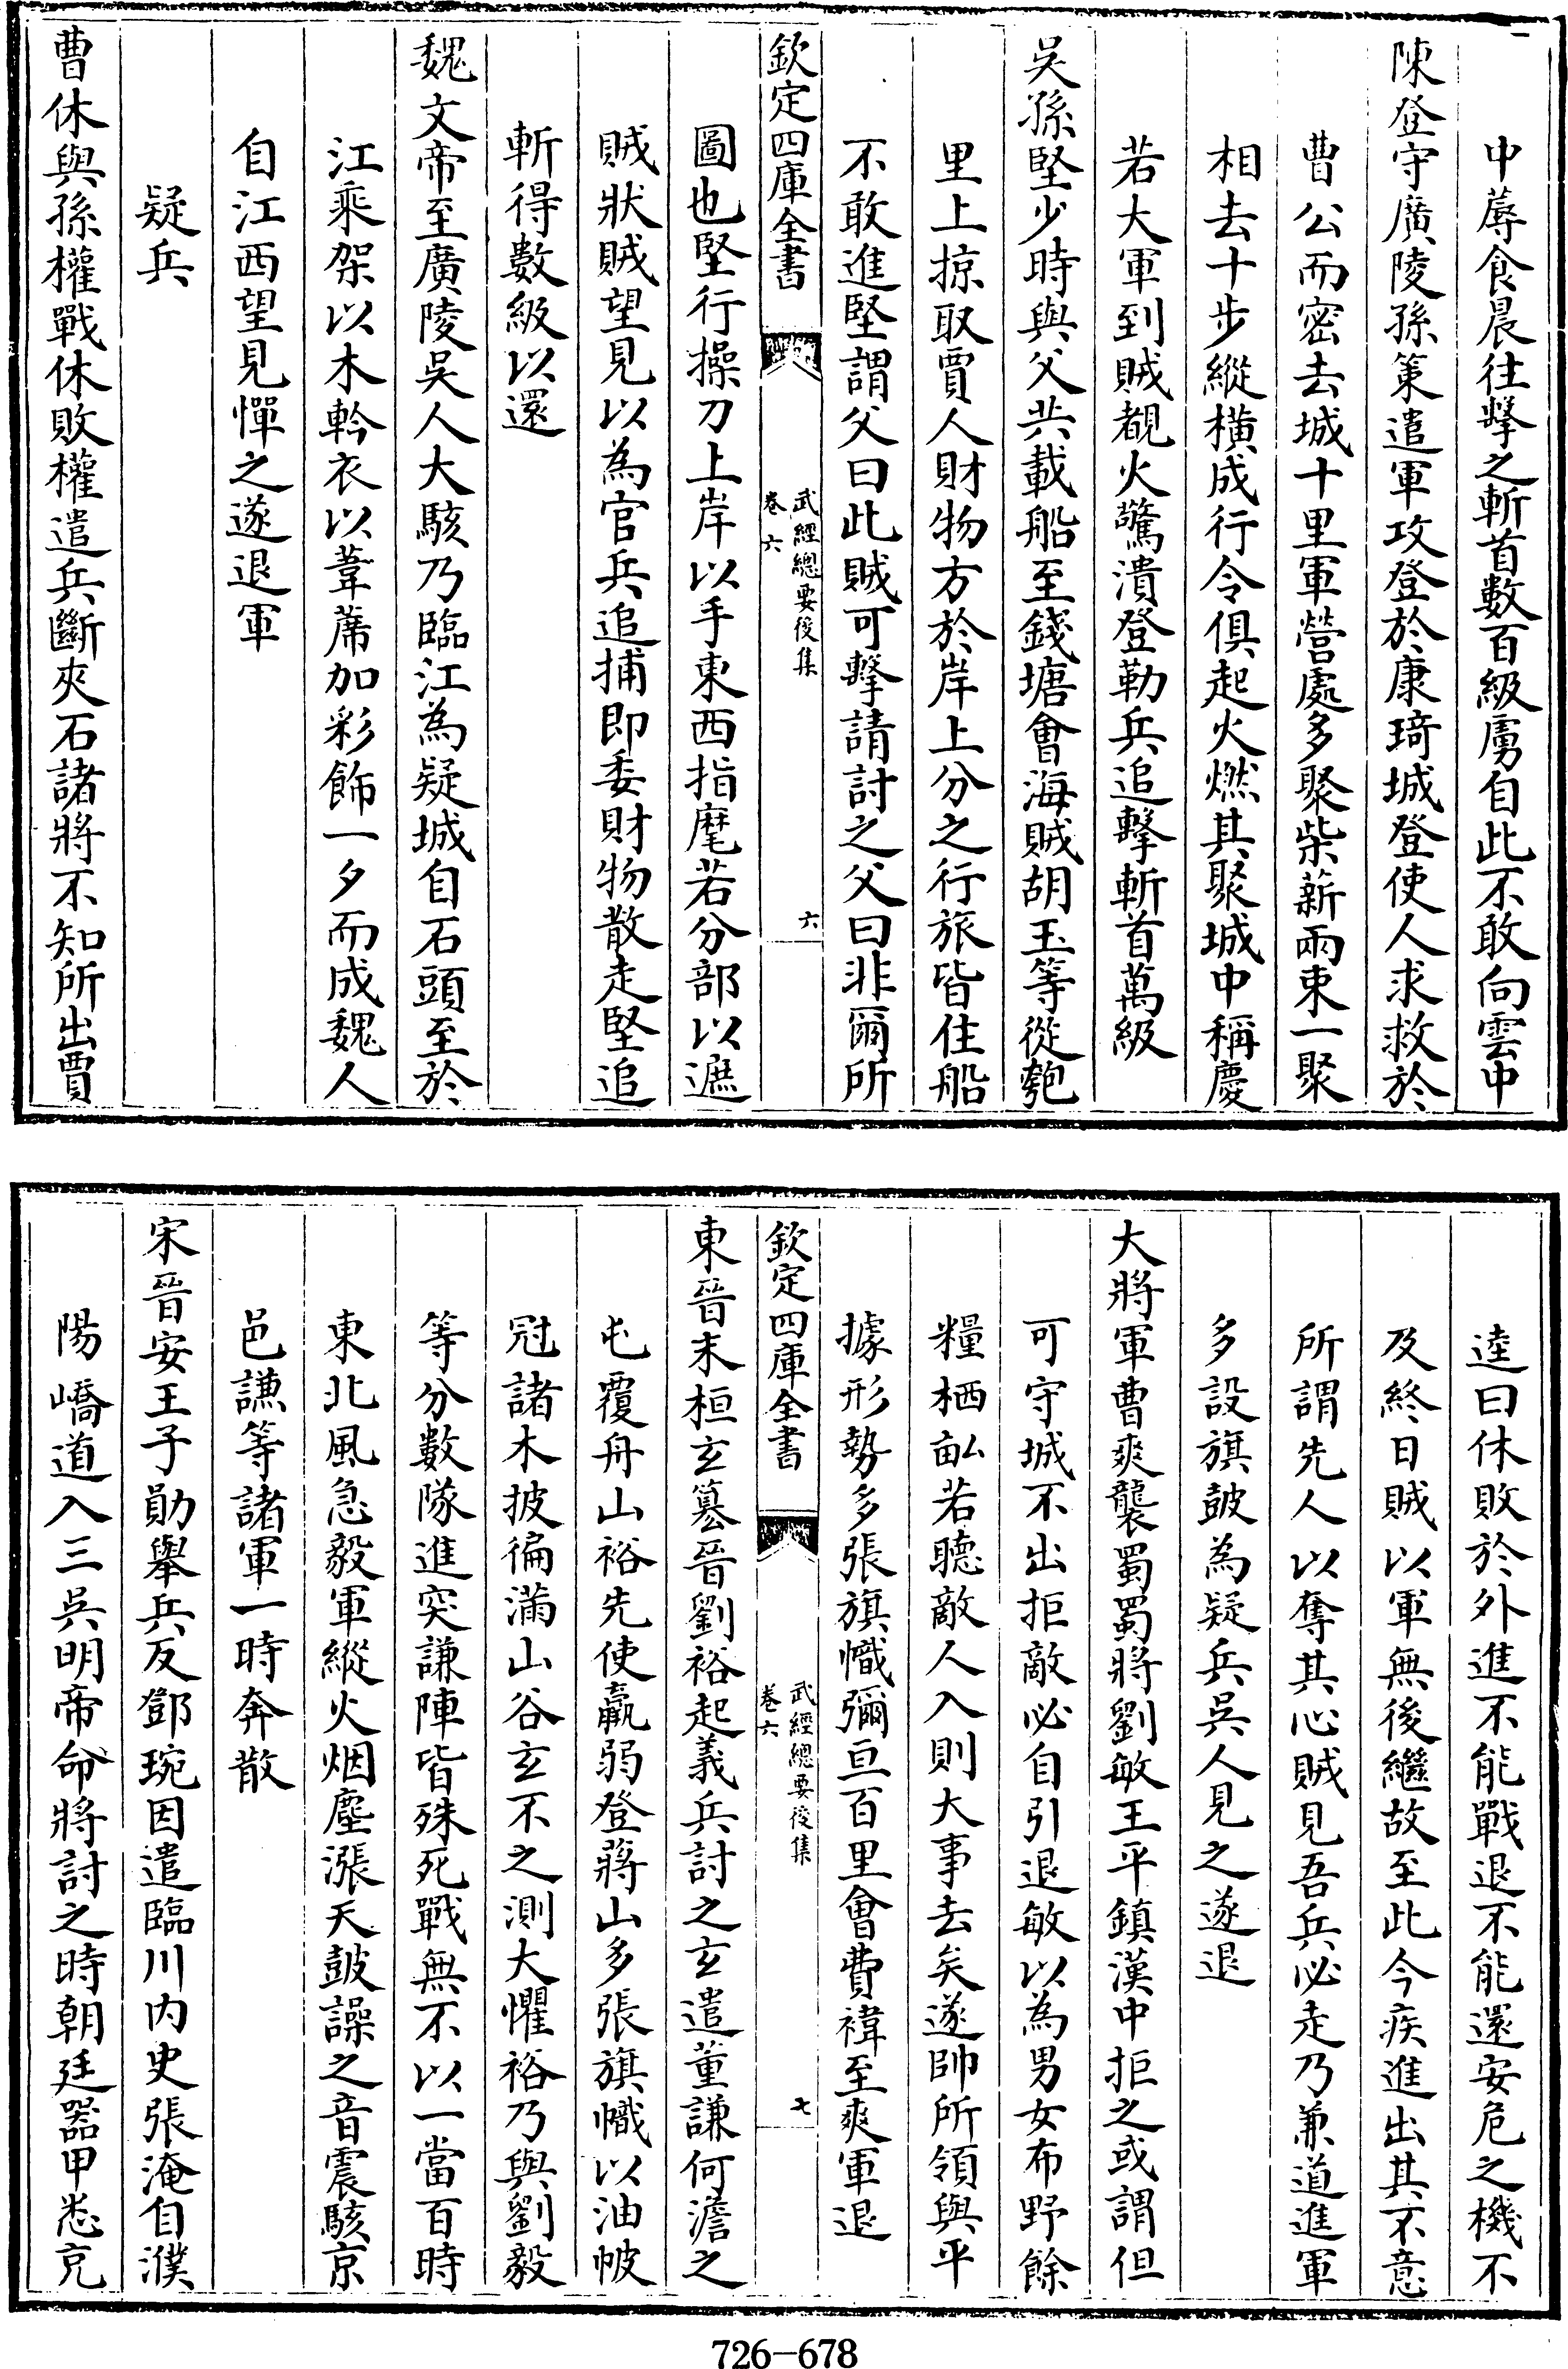 中蓐食晨往擊之斬首數百級虜自此不敢向雲中
陳登守廣陵孫策遣軍攻登於康琦城登使人求救於
曹公而密去城十里軍營處多聚柴薪兩束一聚
相去十步縱橫成行令俱起火燃其聚城中稱慶
若大軍到賊覩火驚潰登勒兵追擊斬首萬級
吳孫堅少時與父共載船至錢塘會海賊胡玉等從匏
里上掠取賈人財物方於岸上分之行旅皆住船
不敢進堅謂父曰此賊可擊請討之父曰非爾所
欽定四庫全書
武經總要後集
卷六
六
圖也堅行操刀上岸以手東西指麾若分部以遮
賊狀賊望見以為官兵追捕即委財物散走堅追
斬得數級以還
魏文帝至廣陵吳人大駭乃臨江為疑城自石頭至於
江乘架以木幹衣以葦蓆加彩飾一夕而成魏人
自江西望見憚之遂退軍
疑兵
曹休與孫權戰休敗權遣兵斷夾石諸將不知所出賈
逵曰休敗於外進不能戰退不能還安危之機不
及終日賊以軍無後繼故至此今疾進出其不意
所謂先人以奪其心賊見吾兵必走乃兼道進軍
多設旗鼓為疑兵吳人見之遂退
大將軍曹爽襲蜀蜀將劉敏王平鎮漢中拒之或謂但
可守城不出拒敵必自引退敏以為男女布野餘
糧栖畝若聽敵人入則大事去矣遂帥所領與平
據形勢多張旗幟彌亘百里會費禕至爽軍退
欽定四庫全書
武經總要後集
卷六
七
東晉末桓玄簒晉劉裕起義兵討之玄遣董謙何澹之
屯覆舟山裕先使羸弱登蔣山多張旗幟以油帔
冠諸木披徧滿山谷玄不之測大懼裕乃與劉毅
等分數隊進突謙陣皆殊死戰無不以一當百時
東北風急毅軍縱火烟塵漲天鼓譟之音震駭京
邑謙等諸軍一時奔散
宋晉安王子勛舉兵反鄧琬因遣臨川内史張淹自濮
陽嶠道入三吳明帝命將討之時朝廷器甲悉充
726-678